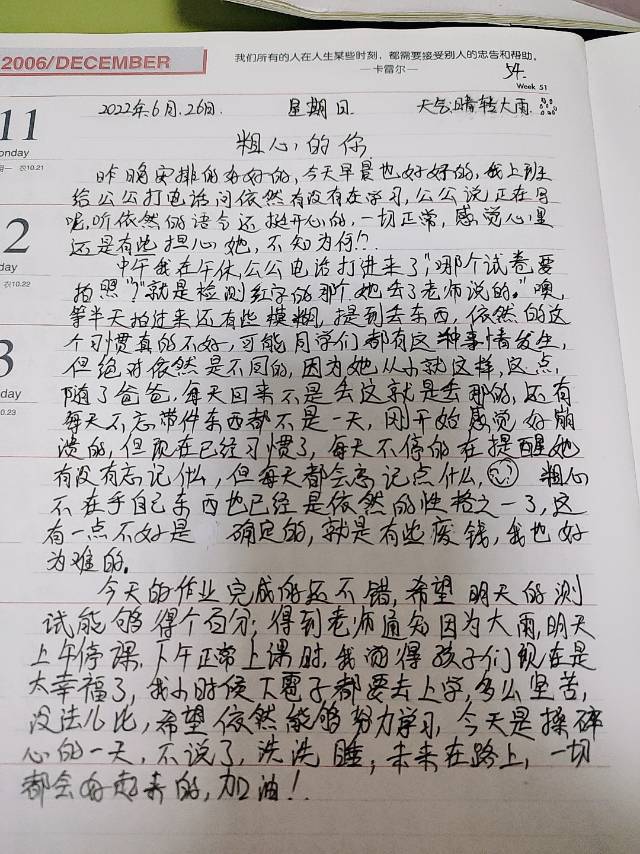 2006/DECEMBER
我们所有的人在人生某些时刻，都需要接受别人的忠告和帮助。
—卡雷尔—
54.
Week 51
11
onday
农10.21
2022年6月26日. 星期日. 天气:晴转大雨
粗心的你
昨晚安排的好好的，今天早晨也好好的，我上班
给公公打电话问依然有没有在学习，公公说正在写
呢，听依然的语气还挺开心的，一切正常，感觉心里
还是有些担心她，不知为何!?
2
day
农10.22
中午我在午休，公公电话打进来了，"哪个试卷要
拍照"?"就是检测红字的那个她丢了老师说的。"噢，
等半天拍过来还有些模糊，提到丢东西，依然的这
个习惯真的不好，可能同学们都有这种事情发生，
但绝对依然是不同的，因为她从小就这样，这一点，
3
day
0.23
随了爸爸，每天回来不是丢这就是丢那的，还有
每天不忘带件东西都不是一天，刚开始感觉好崩
溃的，但现在已经习惯了，每天不停的在提醒她
有没有忘记什么，但每天都会忘记点什么， 粗心
不在乎自己东西也已经是依然的性格之一了，这
有一点不好是 确定的，就是有些废钱，我也好
为难的。
今天的作业完成的还不错，希望明天的测
试能够得个百分；得到老师通知因为大雨，明天
上午停课，下午正常上课时，我觉得孩子们现在是
太幸福了，我小时候下雹子都要去上学，多么坚苦，
没法儿比，希望依然能够努力学习，今天是操碎
心的一天，不说了，洗洗睡，未来在路上，一切
都会好起来的，加油！